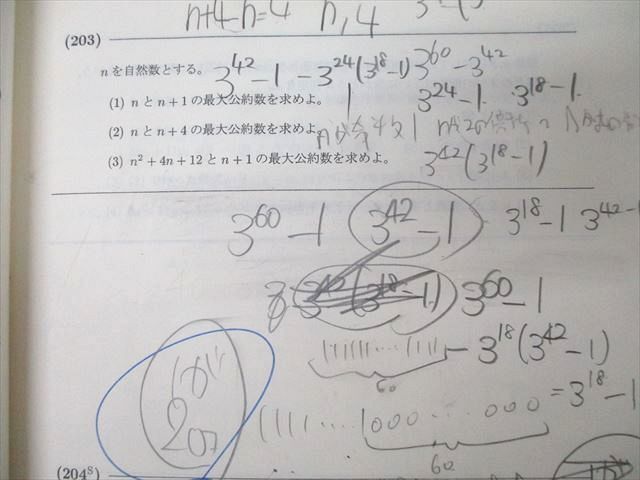 n+4-n=4 n, 4
(203)
nを自然数とする。 3^42-1 -3^24(3^18-1) 3^60-3^42
(1) n と n+1 の最大公約数を求めよ。 1 3^24-1. 3^18-1.
(2) n と n+4 の最大公約数を求めよ。 nが奇数 1
(3) n²+4n+12 と n+1 の最大公約数を求めよ。 3^42(3^18-1)
3^60-1 3^42-1 3^18-1 3^42-1
3^42(3^18-1) 3^60-1
1111111...1111 - 3^18(3^42-1)
60
= 3^18-1
1111.....1000.....000
60
(204ˢ)